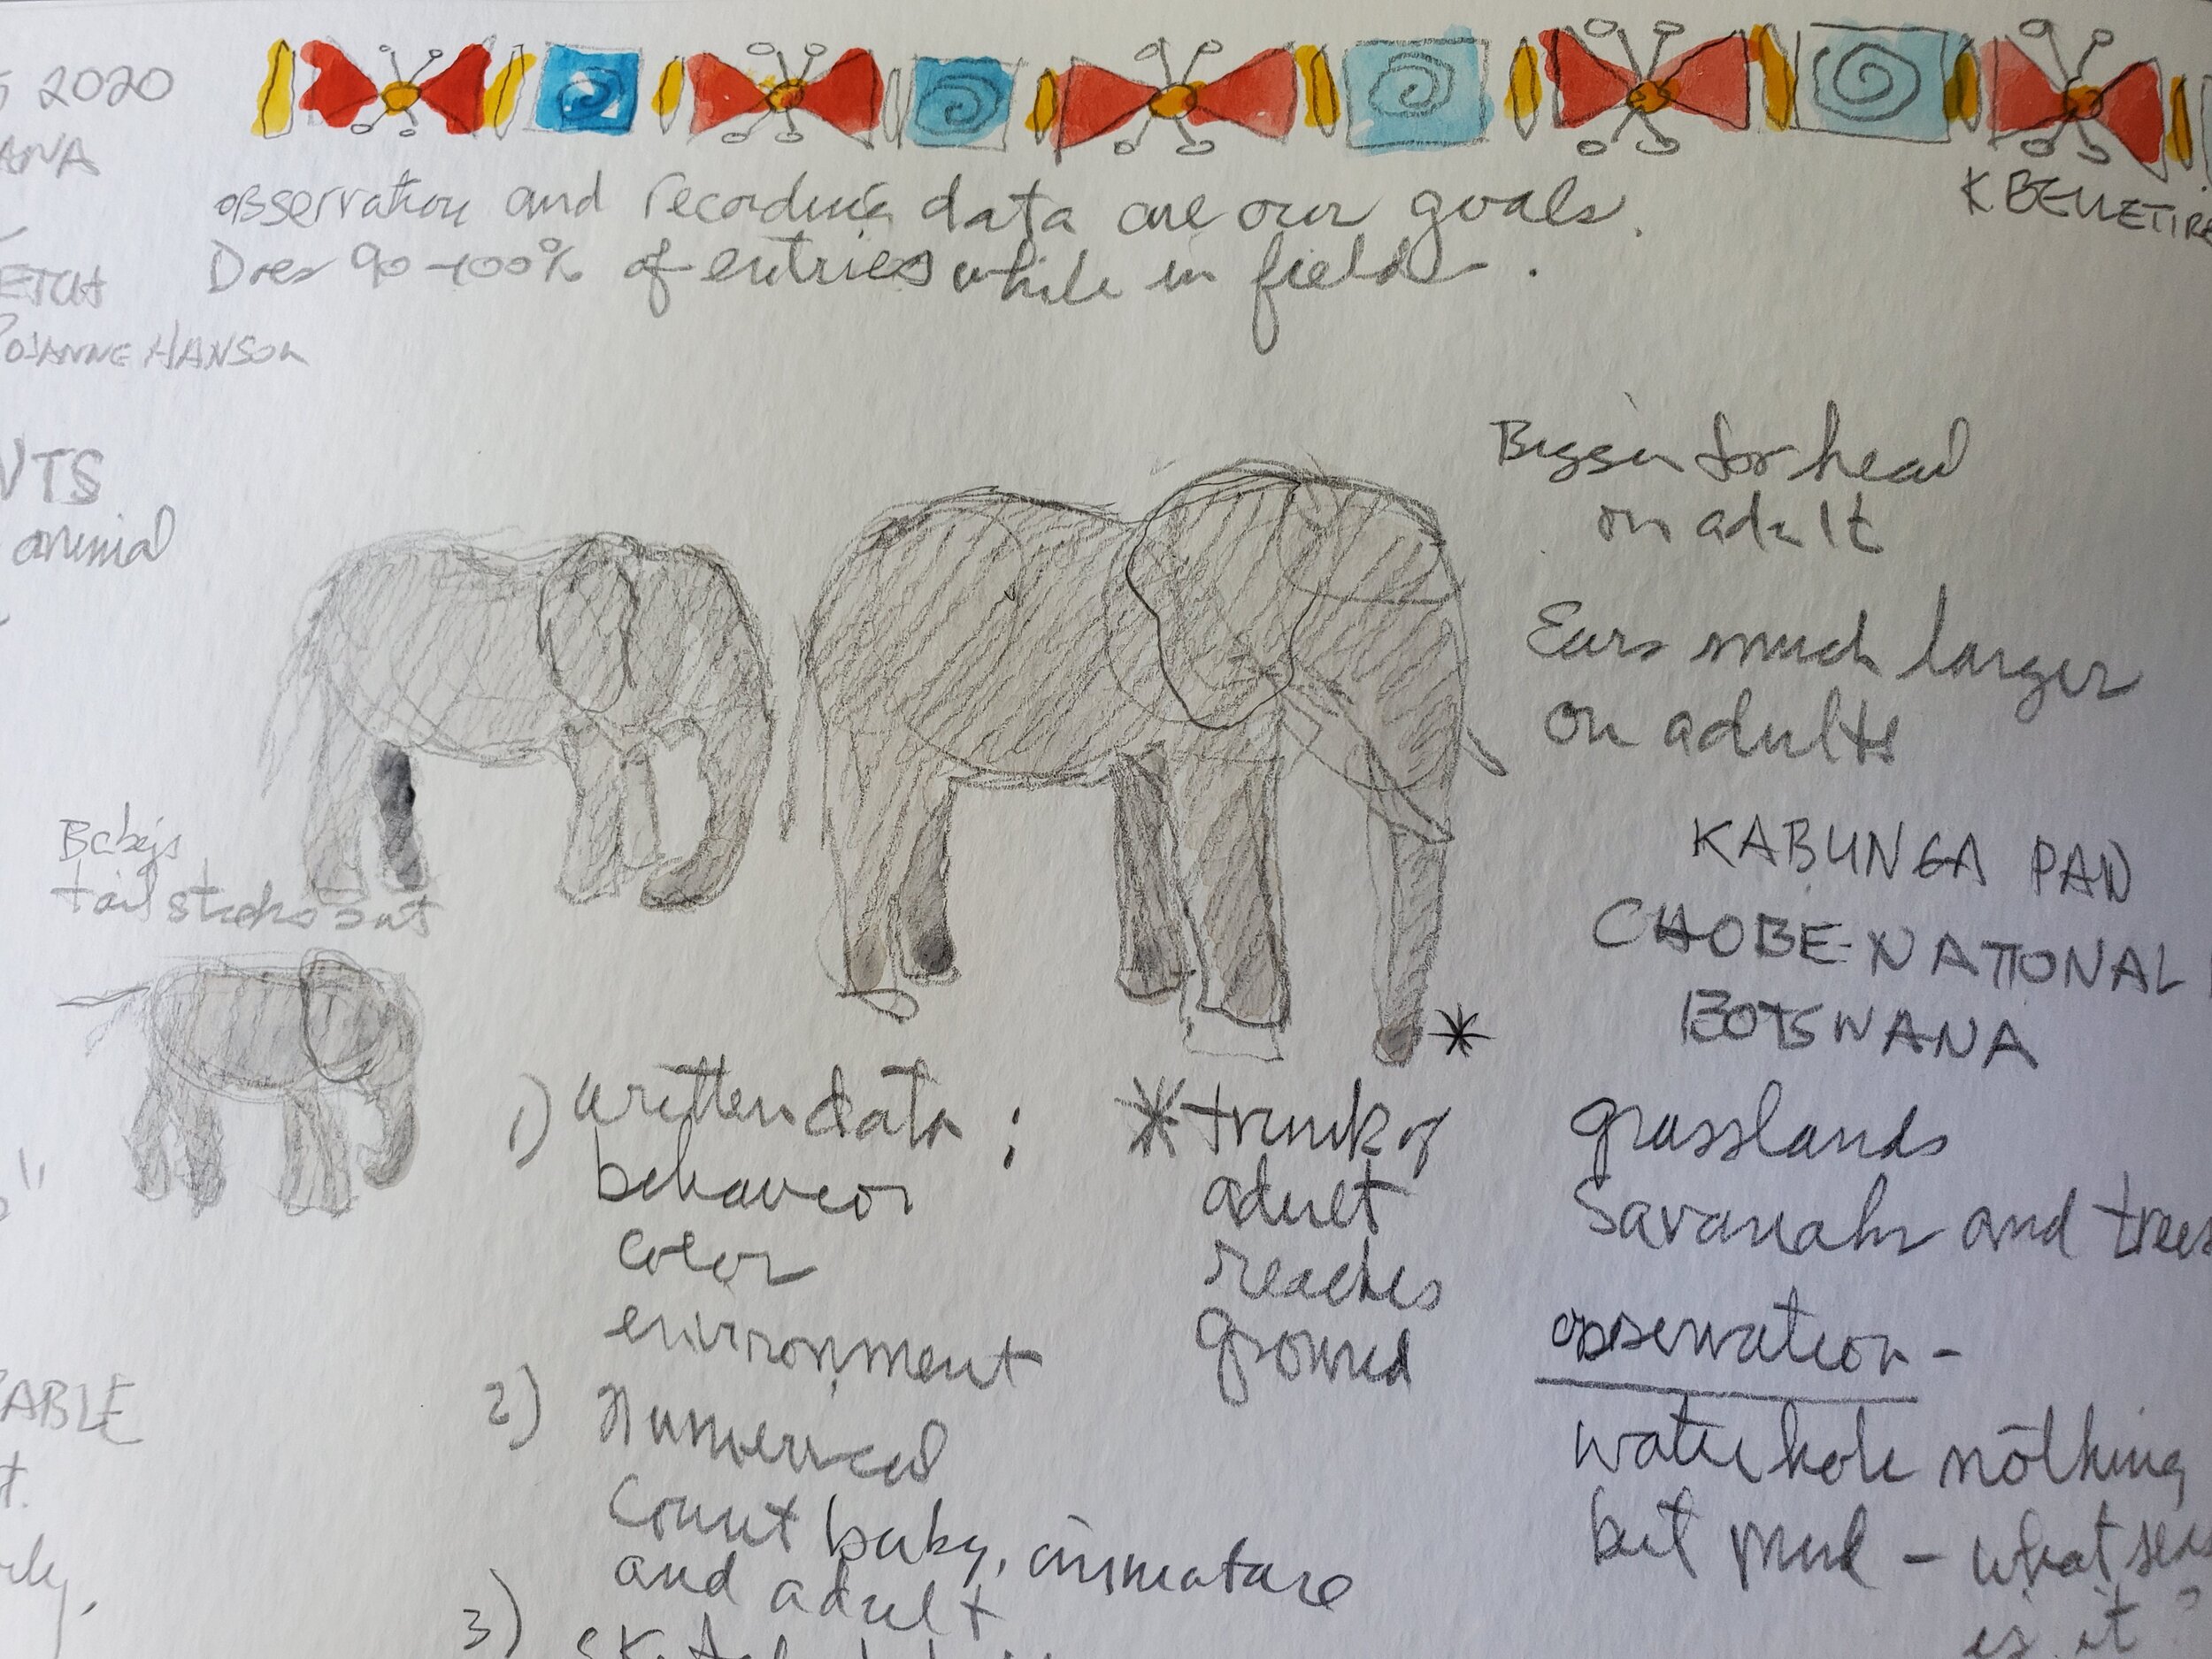 2020
ANA
ETCH
HANSON
NTS
animal
K BELLETIRE
observation and recording data are our goals.
Does 90-100% of entries while in field.
Bigger forhead
on adult
Ears much larger
on adults
KABUNGA PAN
CHOBE NATIONAL
BOTSWANA
grasslands
Savanahr and trees
observation -
waterhole nothing
but mud - what
is it?
Baby's
tail out
1) written data :
behavior
color
environment
2) Numerical
Count baby, immature
and adult
3)
* trunk of
adult
reaches
ground
*
ABLE